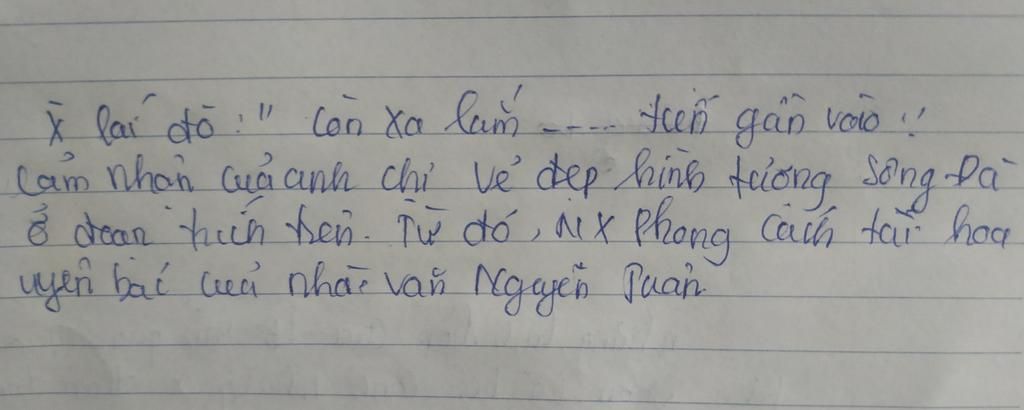 X lái đò: " Còn xa lắm ---- tiến gần vào "
Cảm nhận của anh chị vẻ đẹp hình tượng Sông Đà
ở đoạn trích trên. Từ đó, NX phong cách tài hoa
uyên bác của nhà văn Nguyễn Tuân.